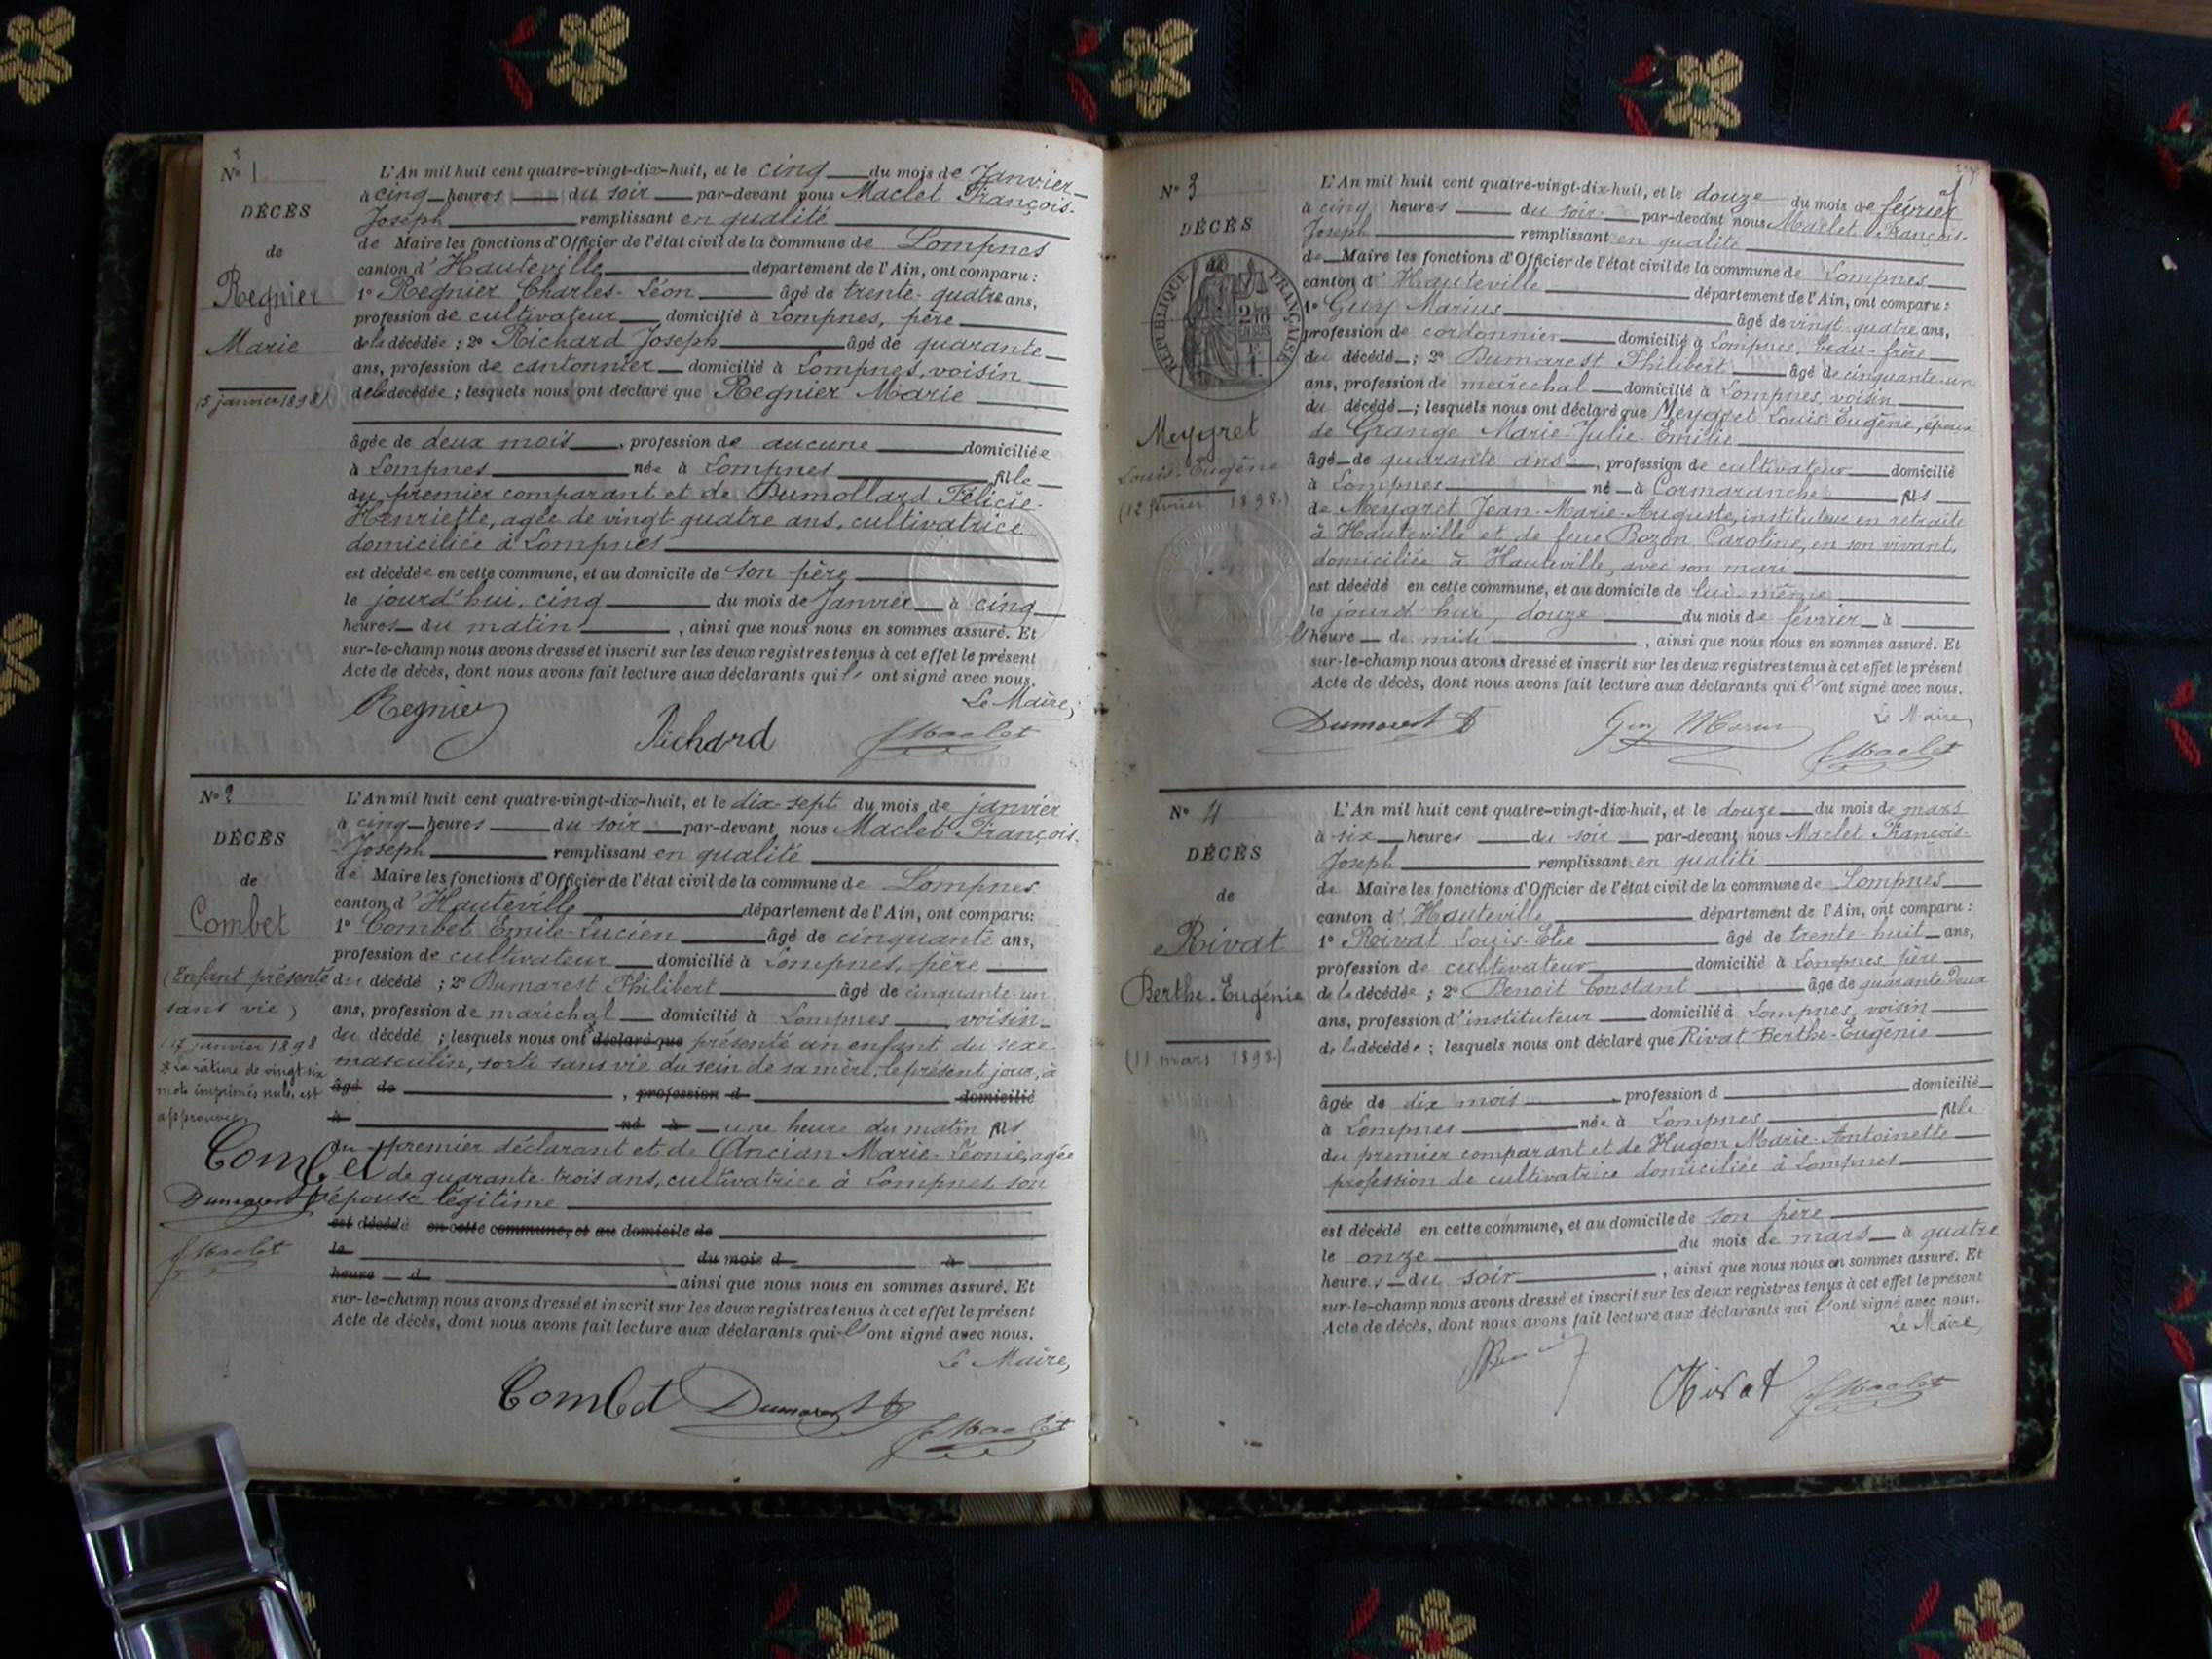 N° 1
DÉCÈS
de
Regnier
Marie
(5 janvier 1898)
L'An mil huit cent quatre-vingt-dix-huit, et le cinq du mois de Janvier
à cinq heures du soir par-devant nous Maclet François-
Joseph remplissant en qualité
de Maire les fonctions d'Officier de l'état civil de la commune de Lompnes
canton d'Hauteville département de l'Ain, ont comparu :
1° Regnier Charles-Léon âgé de trente-quatre ans,
profession de cultivateur domicilié à Lompnes, père
de la décédée ; 2° Richard Joseph âgé de quarante
ans, profession de cantonnier domicilié à Lompnes, voisin
de la décédée ; lesquels nous ont déclaré que Regnier Marie
âgée de deux mois, profession de aucune domiciliée
à Lompnes née à Lompnes fille
du premier comparant et de Dumollard Félicie-
Henriette, agée de vingt-quatre ans, cultivatrice
domiciliée à Lompnes
est décédée en cette commune, et au domicile de son père
le jourd'hui, cinq du mois de Janvier à cinq
heures du matin, ainsi que nous nous en sommes assuré. Et
sur-le-champ nous avons dressé et inscrit sur les deux registres tenus à cet effet le présent
Acte de décès, dont nous avons fait lecture aux déclarants qui ls ont signé avec nous.
Le Maire,
Regnier Richard J Maclet
N° 2
DÉCÈS
de
Combet
(Enfant présenté
sans vie)
(17 janvier 1898
* La râture de vingt-six
mots imprimés nuls, est
approuvée
Combet
Dumarest P
J Maclet
L'An mil huit cent quatre-vingt-dix-huit, et le dix-sept du mois de janvier
à cinq heures du soir par-devant nous Maclet François-
Joseph remplissant en qualité
de Maire les fonctions d'Officier de l'état civil de la commune de Lompnes
canton d'Hauteville département de l'Ain, ont comparu :
1° Combet Emile-Lucien âgé de cinquante ans,
profession de cultivateur domicilié à Lompnes, père
du décédé ; 2° Dumarest Philibert âgé de cinquante-un
ans, profession de maréchal domicilié à Lompnes, voisin
du décédé ; lesquels nous ont * déclaré que présenté un enfant du sexe
masculin, sorti sans vie du sein de sa mère, le présent jour, à
âgé de , profession d domicilié
à né à une heure du matin fils
du premier déclarant et de Ancian Marie-Léonie, agée
de quarante-trois ans, cultivatrice à Lompnes son
épouse légitime
est décédé en cette commune, et au domicile de
le du mois d à
heure d ainsi que nous nous en sommes assuré. Et
sur-le-champ nous avons dressé et inscrit sur les deux registres tenus à cet effet le présent
Acte de décès, dont nous avons fait lecture aux déclarants qui ls ont signé avec nous.
Le Maire,
Combet Dumarest P J Maclet
N° 3
DÉCÈS
de
RÉPUBLIQUE FRANÇAISE
Meygret
Louis-Eugène
(12 février 1898.)
L'An mil huit cent quatre-vingt-dix-huit, et le douze du mois de février
à cinq heures du soir par-devant nous Maclet François-
Joseph remplissant en qualité
de Maire les fonctions d'Officier de l'état civil de la commune de Lompnes
canton d'Hauteville département de l'Ain, ont comparu :
1° Guy Marius âgé de vingt-quatre ans,
profession de cordonnier domicilié à Lompnes, beau-frère
du décédé ; 2° Dumarest Philibert âgé de cinquante-un
ans, profession de maréchal domicilié à Lompnes, voisin
du décédé ; lesquels nous ont déclaré que Meygret Louis-Eugène, époux
de Grange Marie-Julie-Emilie
âgé de quarante ans, profession de cultivateur domicilié
à Lompnes né à Cormaranche fils
de Meygret Jean-Marie-Auguste, instituteur en retraite
à Hauteville et de feue Bozon Caroline, en son vivant,
domiciliée à Hauteville, avec son mari
est décédé en cette commune, et au domicile de lui-même
le jourd'hui, douze du mois de février à
l'heure de midi, ainsi que nous nous en sommes assuré. Et
sur-le-champ nous avons dressé et inscrit sur les deux registres tenus à cet effet le présent
Acte de décès, dont nous avons fait lecture aux déclarants qui ls ont signé avec nous.
Le Maire,
Dumarest P Guy Marius J Maclet
N° 4
DÉCÈS
de
Rivat
Berthe-Eugénie
(11 mars 1898.)
L'An mil huit cent quatre-vingt-dix-huit, et le douze du mois de mars
à six heures du soir par-devant nous Maclet François-
Joseph remplissant en qualité
de Maire les fonctions d'Officier de l'état civil de la commune de Lompnes
canton d'Hauteville département de l'Ain, ont comparu :
1° Rivat Louis-Elie âgé de trente-huit ans,
profession de cultivateur domicilié à Lompnes père
de la décédée ; 2° Benoit Constant âgé de quarante deux
ans, profession d'instituteur domicilié à Lompnes, voisin
de la décédée ; lesquels nous ont déclaré que Rivat Berthe-Eugénie
âgée de dix mois, profession d domicilié
à Lompnes née à Lompnes fille
du premier comparant et de Hugon Marie-Antoinette
profession de cultivatrice domiciliée à Lompnes
est décédé en cette commune, et au domicile de son père
le onze du mois de mars à quatre
heures du soir, ainsi que nous nous en sommes assuré. Et
sur-le-champ nous avons dressé et inscrit sur les deux registres tenus à cet effet le présent
Acte de décès, dont nous avons fait lecture aux déclarants qui ls ont signé avec nous.
Le Maire,
Rivat J Maclet